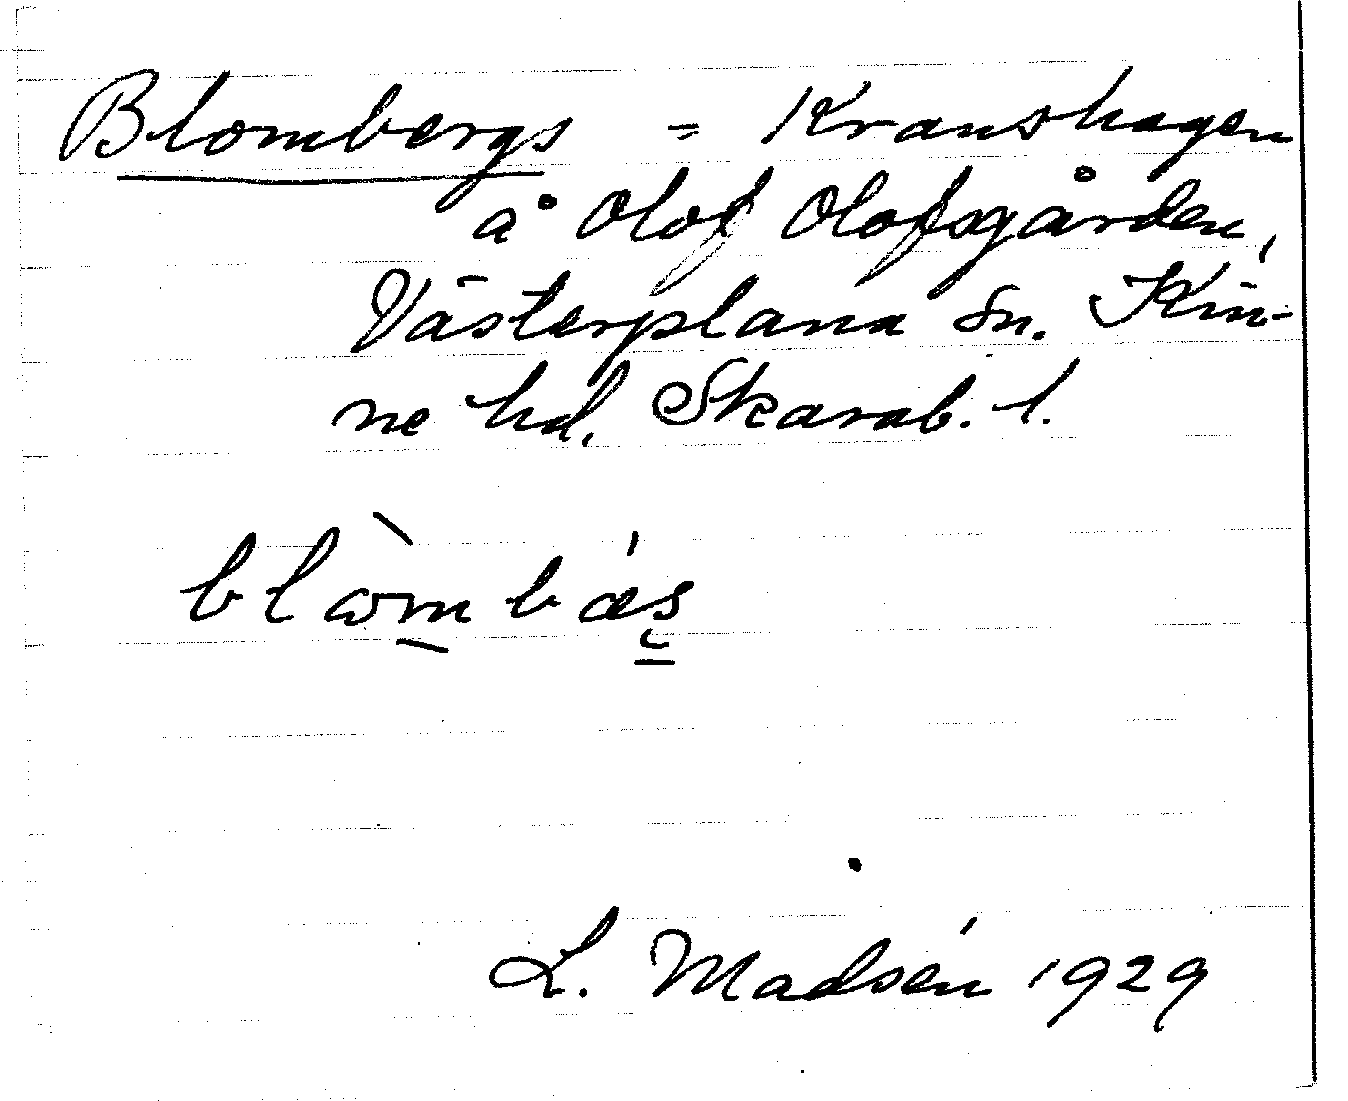 Blombergs = Kranshagen
å Olof Olofsgården,
Västerplana sn. Kin-
ne hd. Skarab. l.
L. Madsén 1929